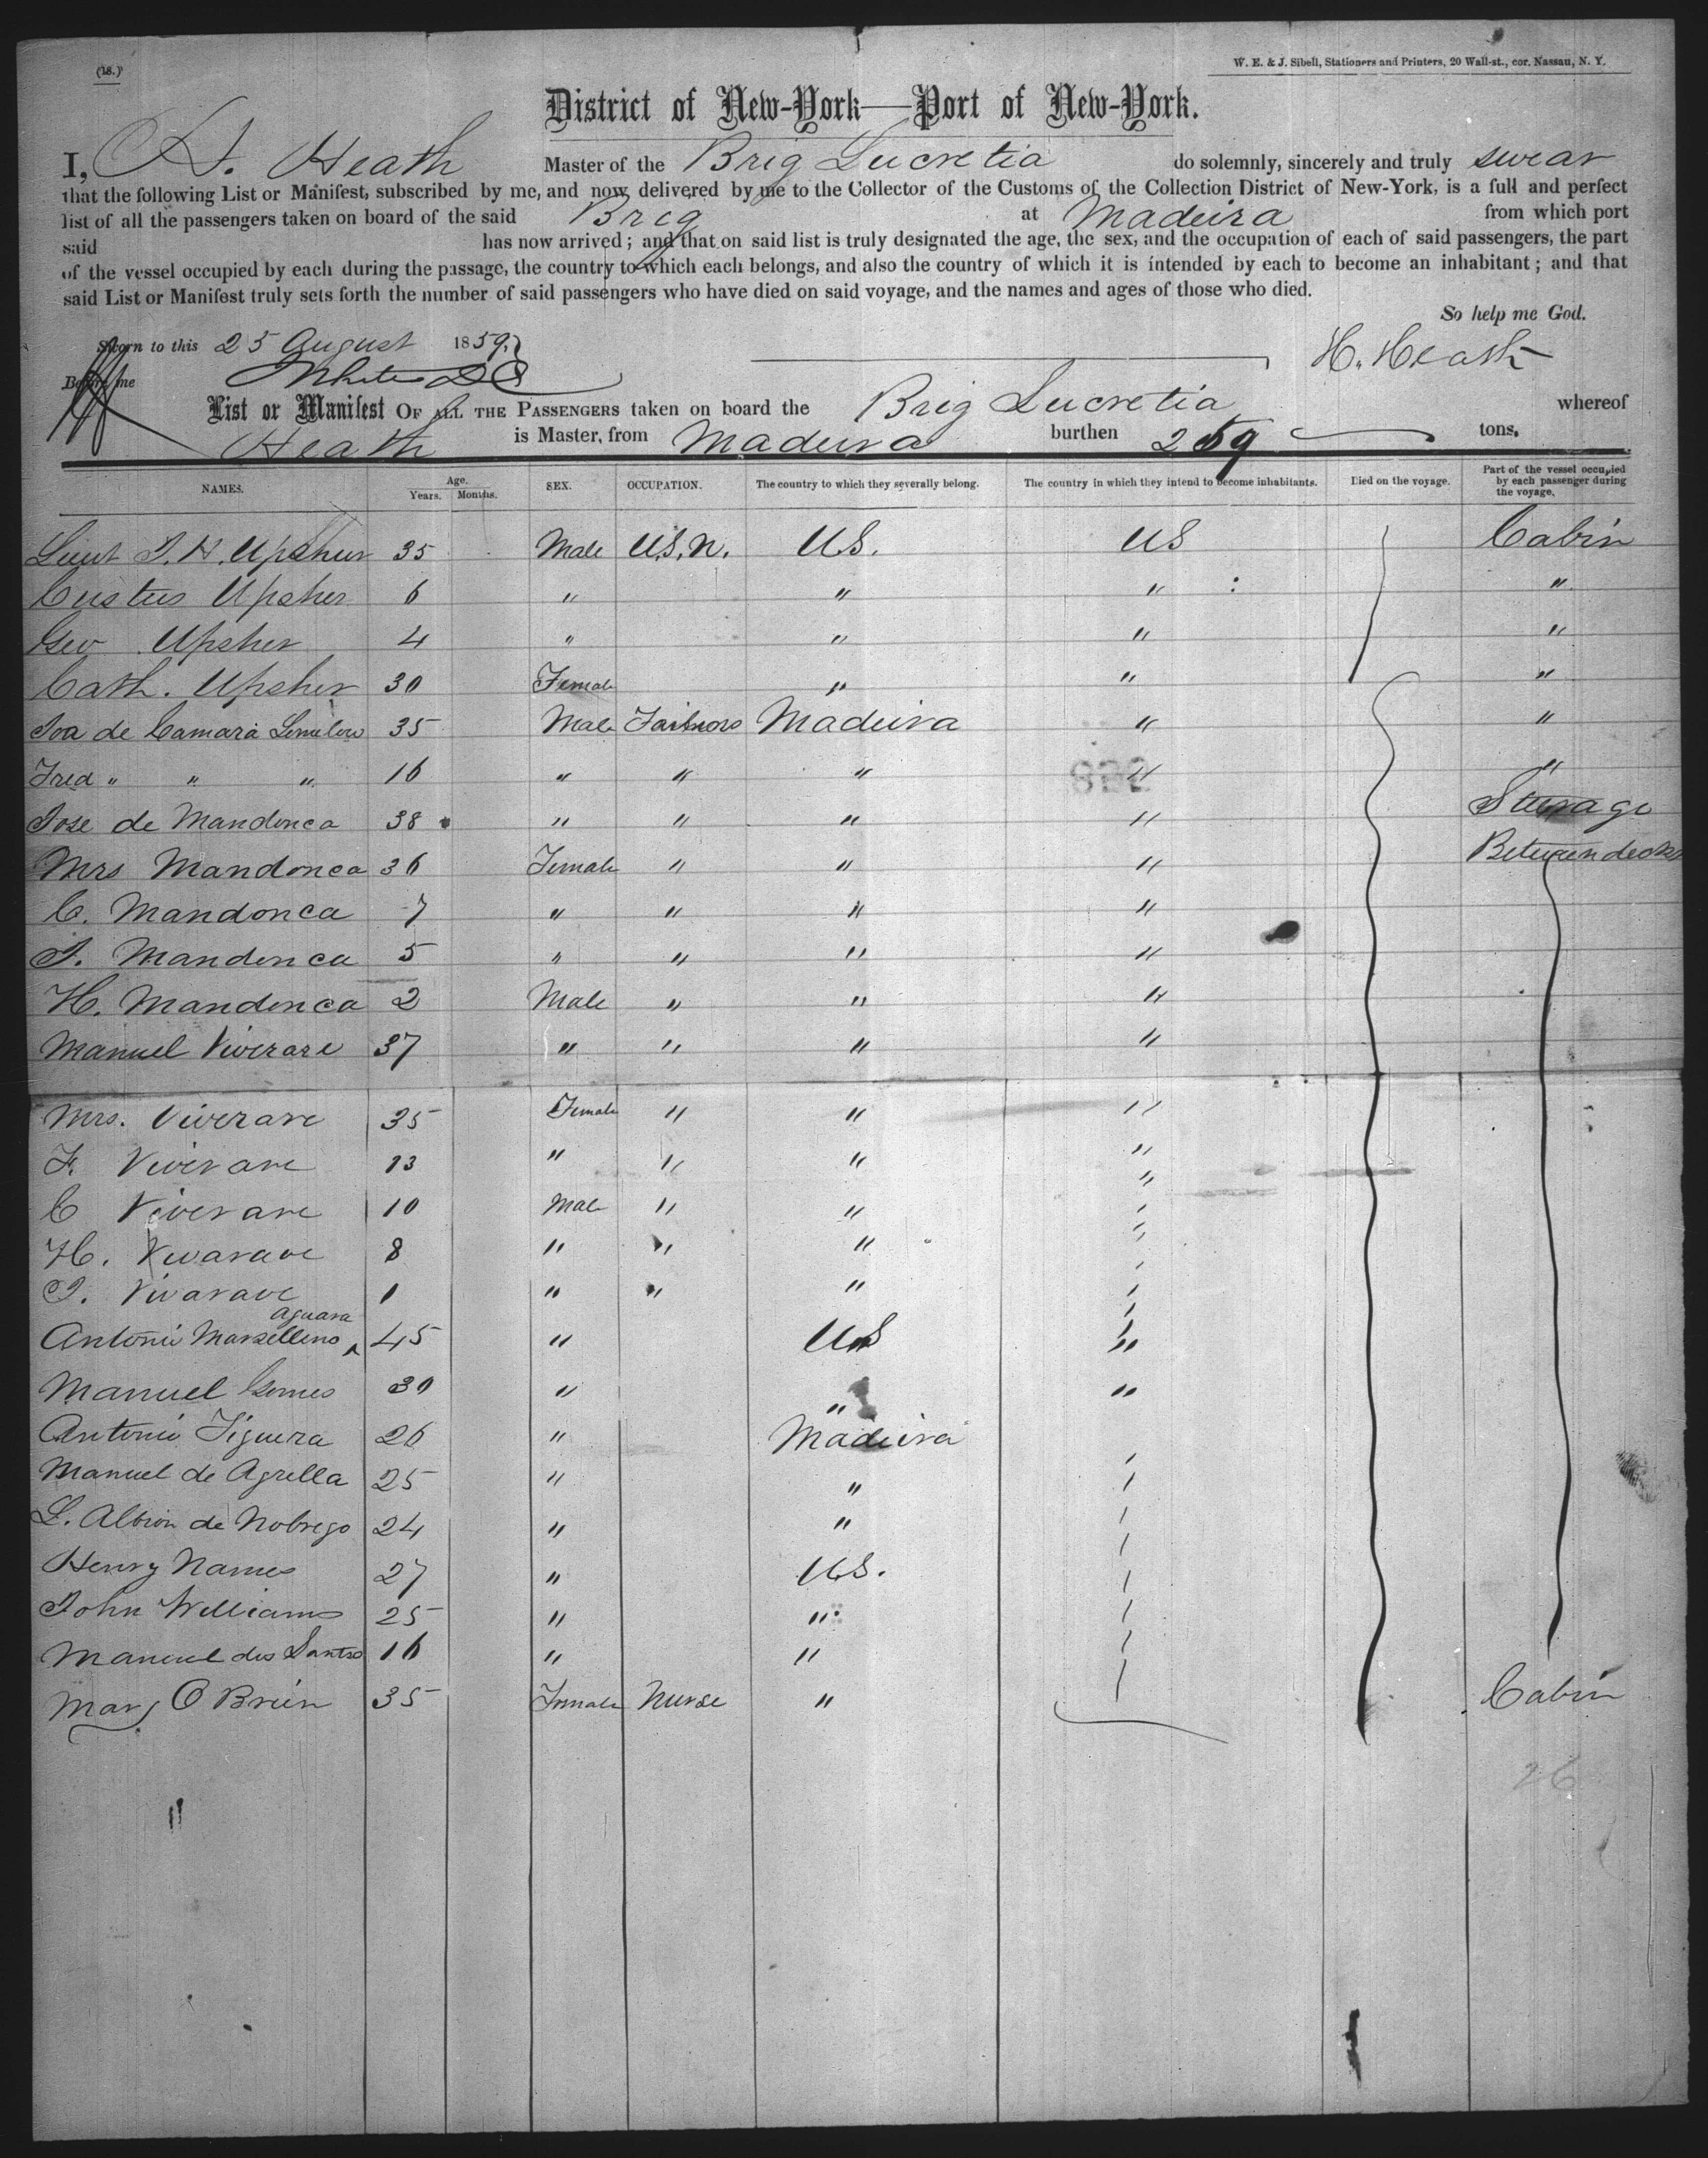 (18.)
W. E. & J. Sibell, Stationers and Printers, 20 Wall-st., cor. Nassau, N. Y.
District of New-York—Port of New-York.
I, H. Heath Master of the Brig Lucretia do solemnly, sincerely and truly swear
that the following List or Manifest, subscribed by me, and now delivered by me to the Collector of the Customs of the Collection District of New-York, is a full and perfect
list of all the passengers taken on board of the said Brig at Madeira from which port
said has now arrived; and that on said list is truly designated the age, the sex, and the occupation of each of said passengers, the part
of the vessel occupied by each during the passage, the country to which each belongs, and also the country of which it is intended by each to become an inhabitant; and that
said List or Manifest truly sets forth the number of said passengers who have died on said voyage, and the names and ages of those who died.
So help me God.
Sworn to this 25 August 1859
H. Heath
Before me White DC
List or Manifest OF ALL THE PASSENGERS taken on board the Brig Lucretia whereof
Heath is Master, from Madeira burthen 259 tons.
NAMES. Age. Years. Months. SEX. OCCUPATION. The country to which they severally belong. The country in which they intend to become inhabitants. Died on the voyage. Part of the vessel occupied by each passenger during the voyage.
Lieut J. H. Upshur 35 Male U.S.N. U.S. US Cabin
Custus Upsher 6 " " " "
Geo Upsher 4 " " " "
Cath. Upsher 30 Female " " "
Joa de Camara 35 Male Madeira " "
Fred " " " 16 " " " " "
Jose de Mandonca 38 " " " " Steerage
Mrs Mandonca 36 Female " " " Between decks
C. Mandonca 7 " " " "
J. Mandonca 5 " " " "
H. Mandonca 2 Male " " "
Manuel Viverare 37 " " " "
Mrs. Viverare 35 Female " " "
F. Viverare 13 " " " "
C Viverare 10 Male " " "
H. Vivarave 8 " " " "
J. Vivarave 1 " " " "
Antonio Marsellino Aguara 45 " US "
Manuel Gomes 30 " " "
Antonio Figuera 26 " Madeira
Manuel de Agrella 25 " "
L. Albion de Nobrego 24 " "
Henry Names 27 " U.S.
John Williams 25 " "
Manuel dos Santos 16 " "
Mary O Brien 35 Female Nurse " Cabin
26